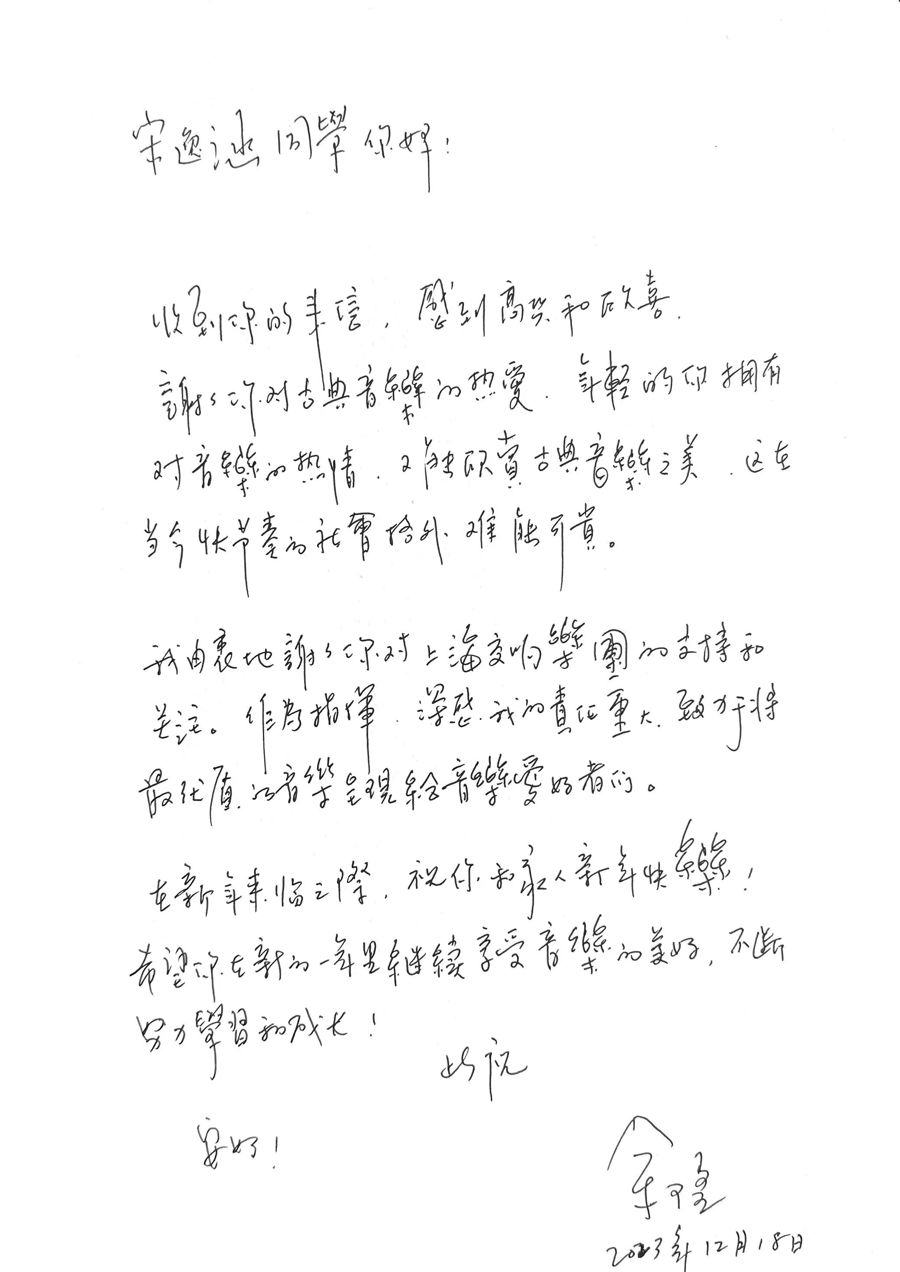 宋逸涵同學你好！
收到你的来信，感到高兴和欣喜.
謝謝你对古典音樂的热愛. 年輕的你拥有
对音樂的热情，才能欣賞古典音樂之美. 这在
当今快节奏的社會格外难能可貴。
我由衷地謝謝你对上海交响樂團的支持和
关注。作为指揮，深感我的責任重大，致力于将
最优质的音樂呈現給音樂愛好者们。
在新年来临之際，祝你和家人新年快樂！
希望你在新的一年里継續享受音樂的美好，不断
努力學習和成长！
此祝
安好！
余隆
2023年12月18日